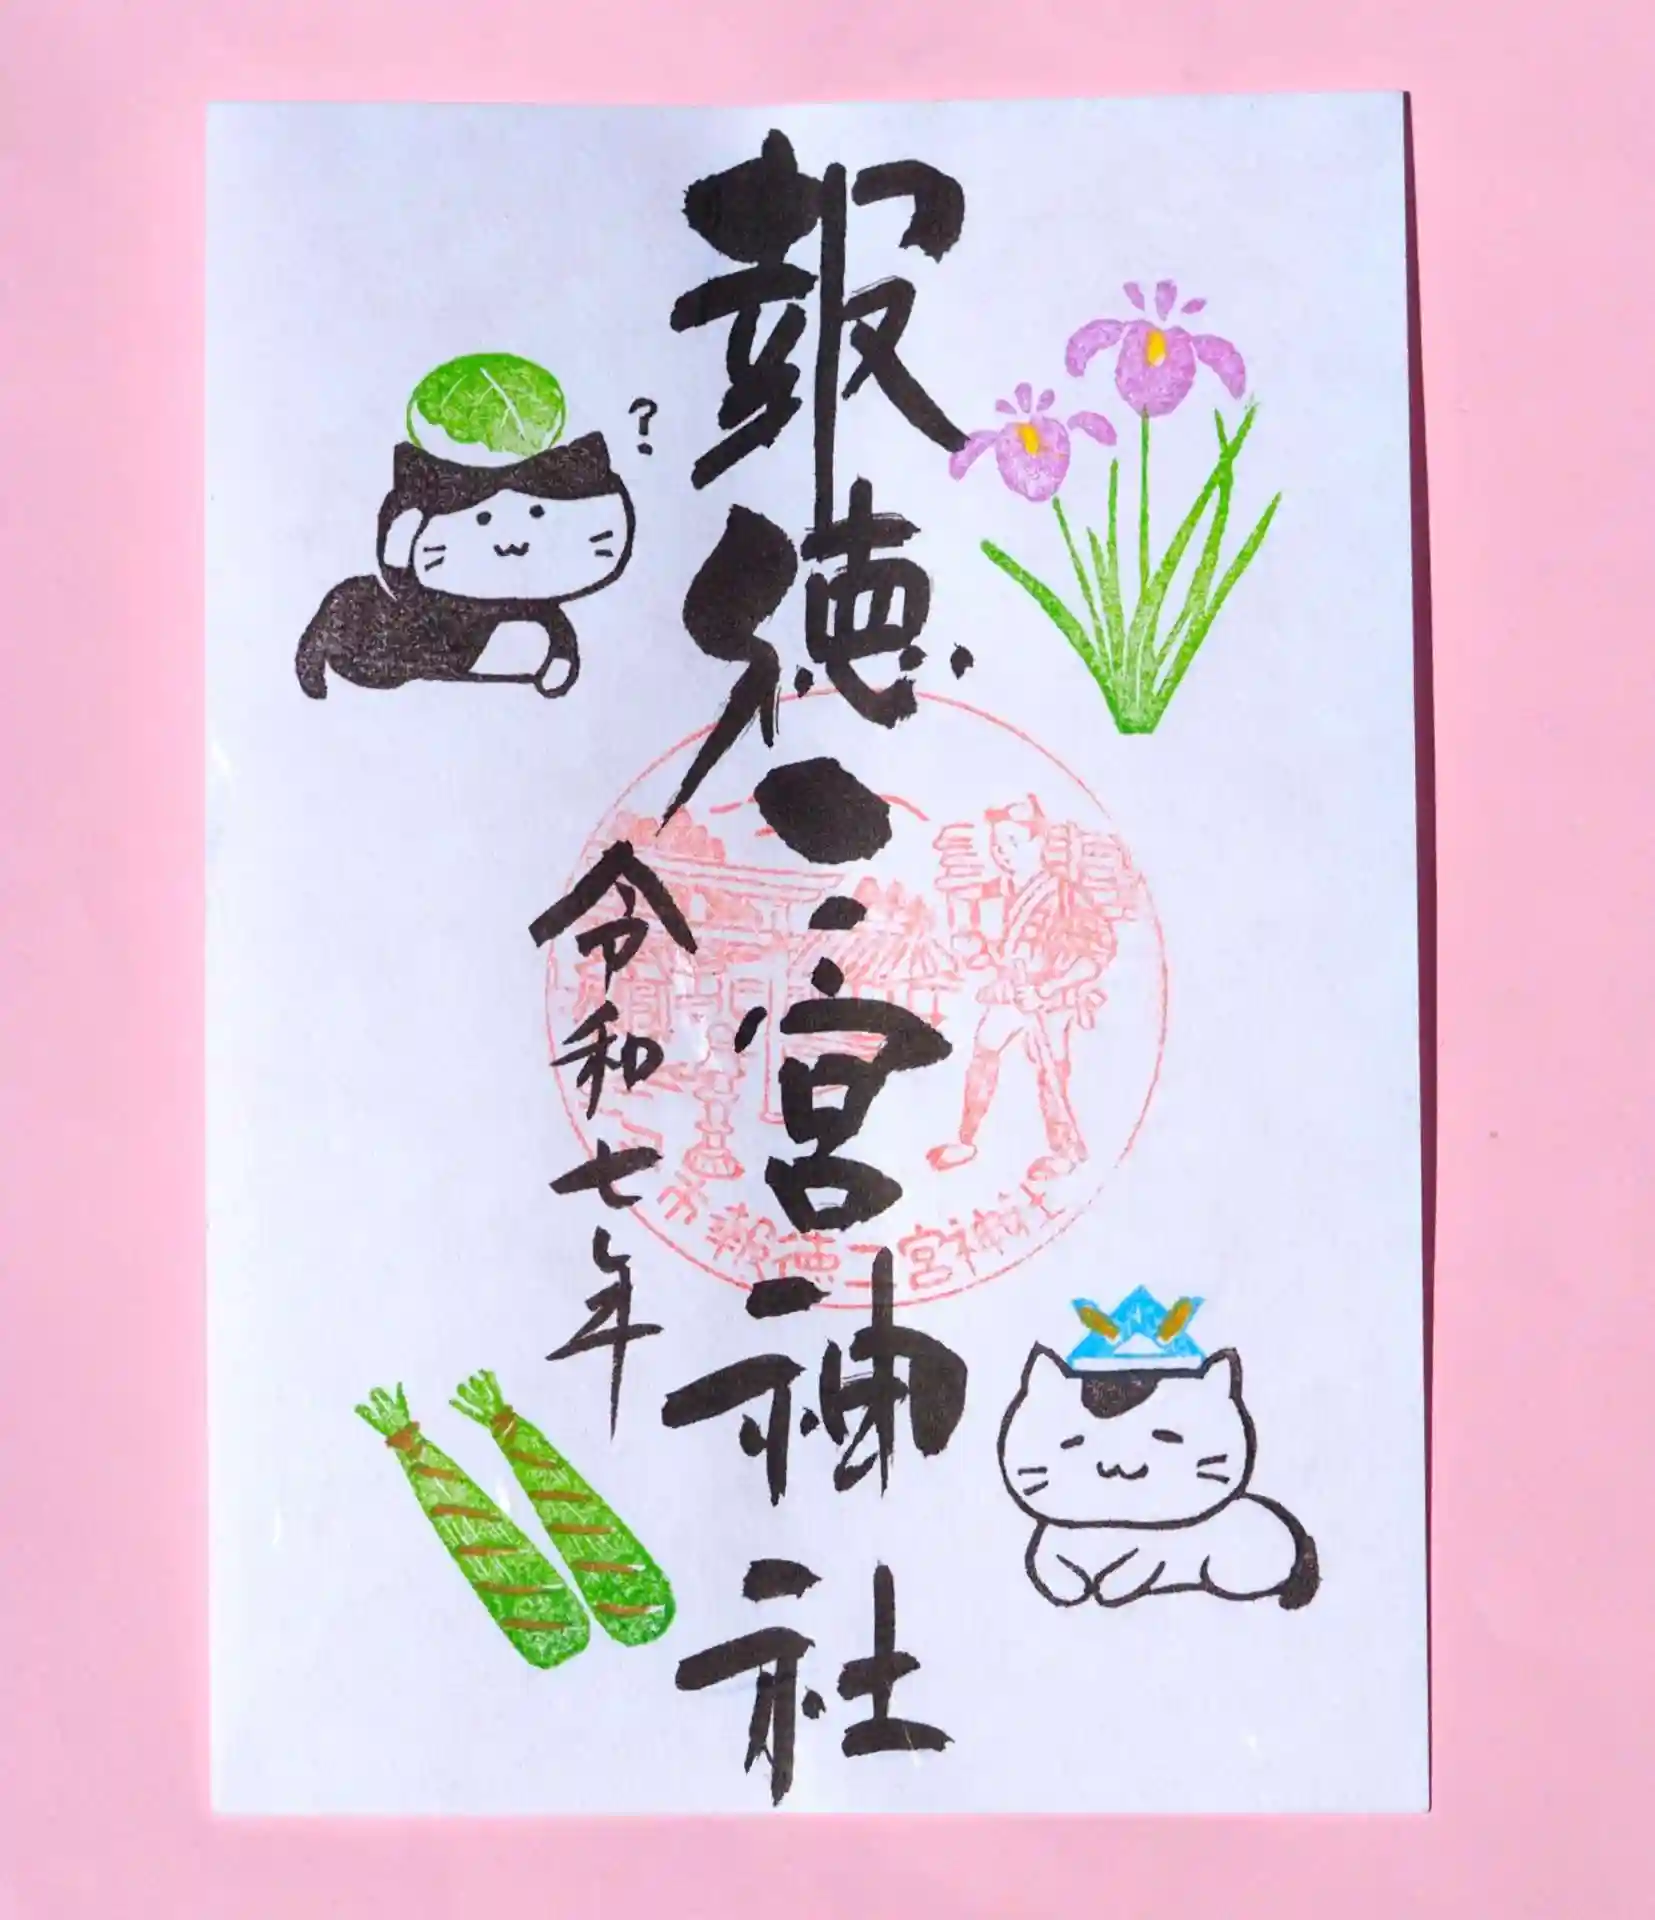 報徳二宮神社
令和七年
?
報徳二宮神社